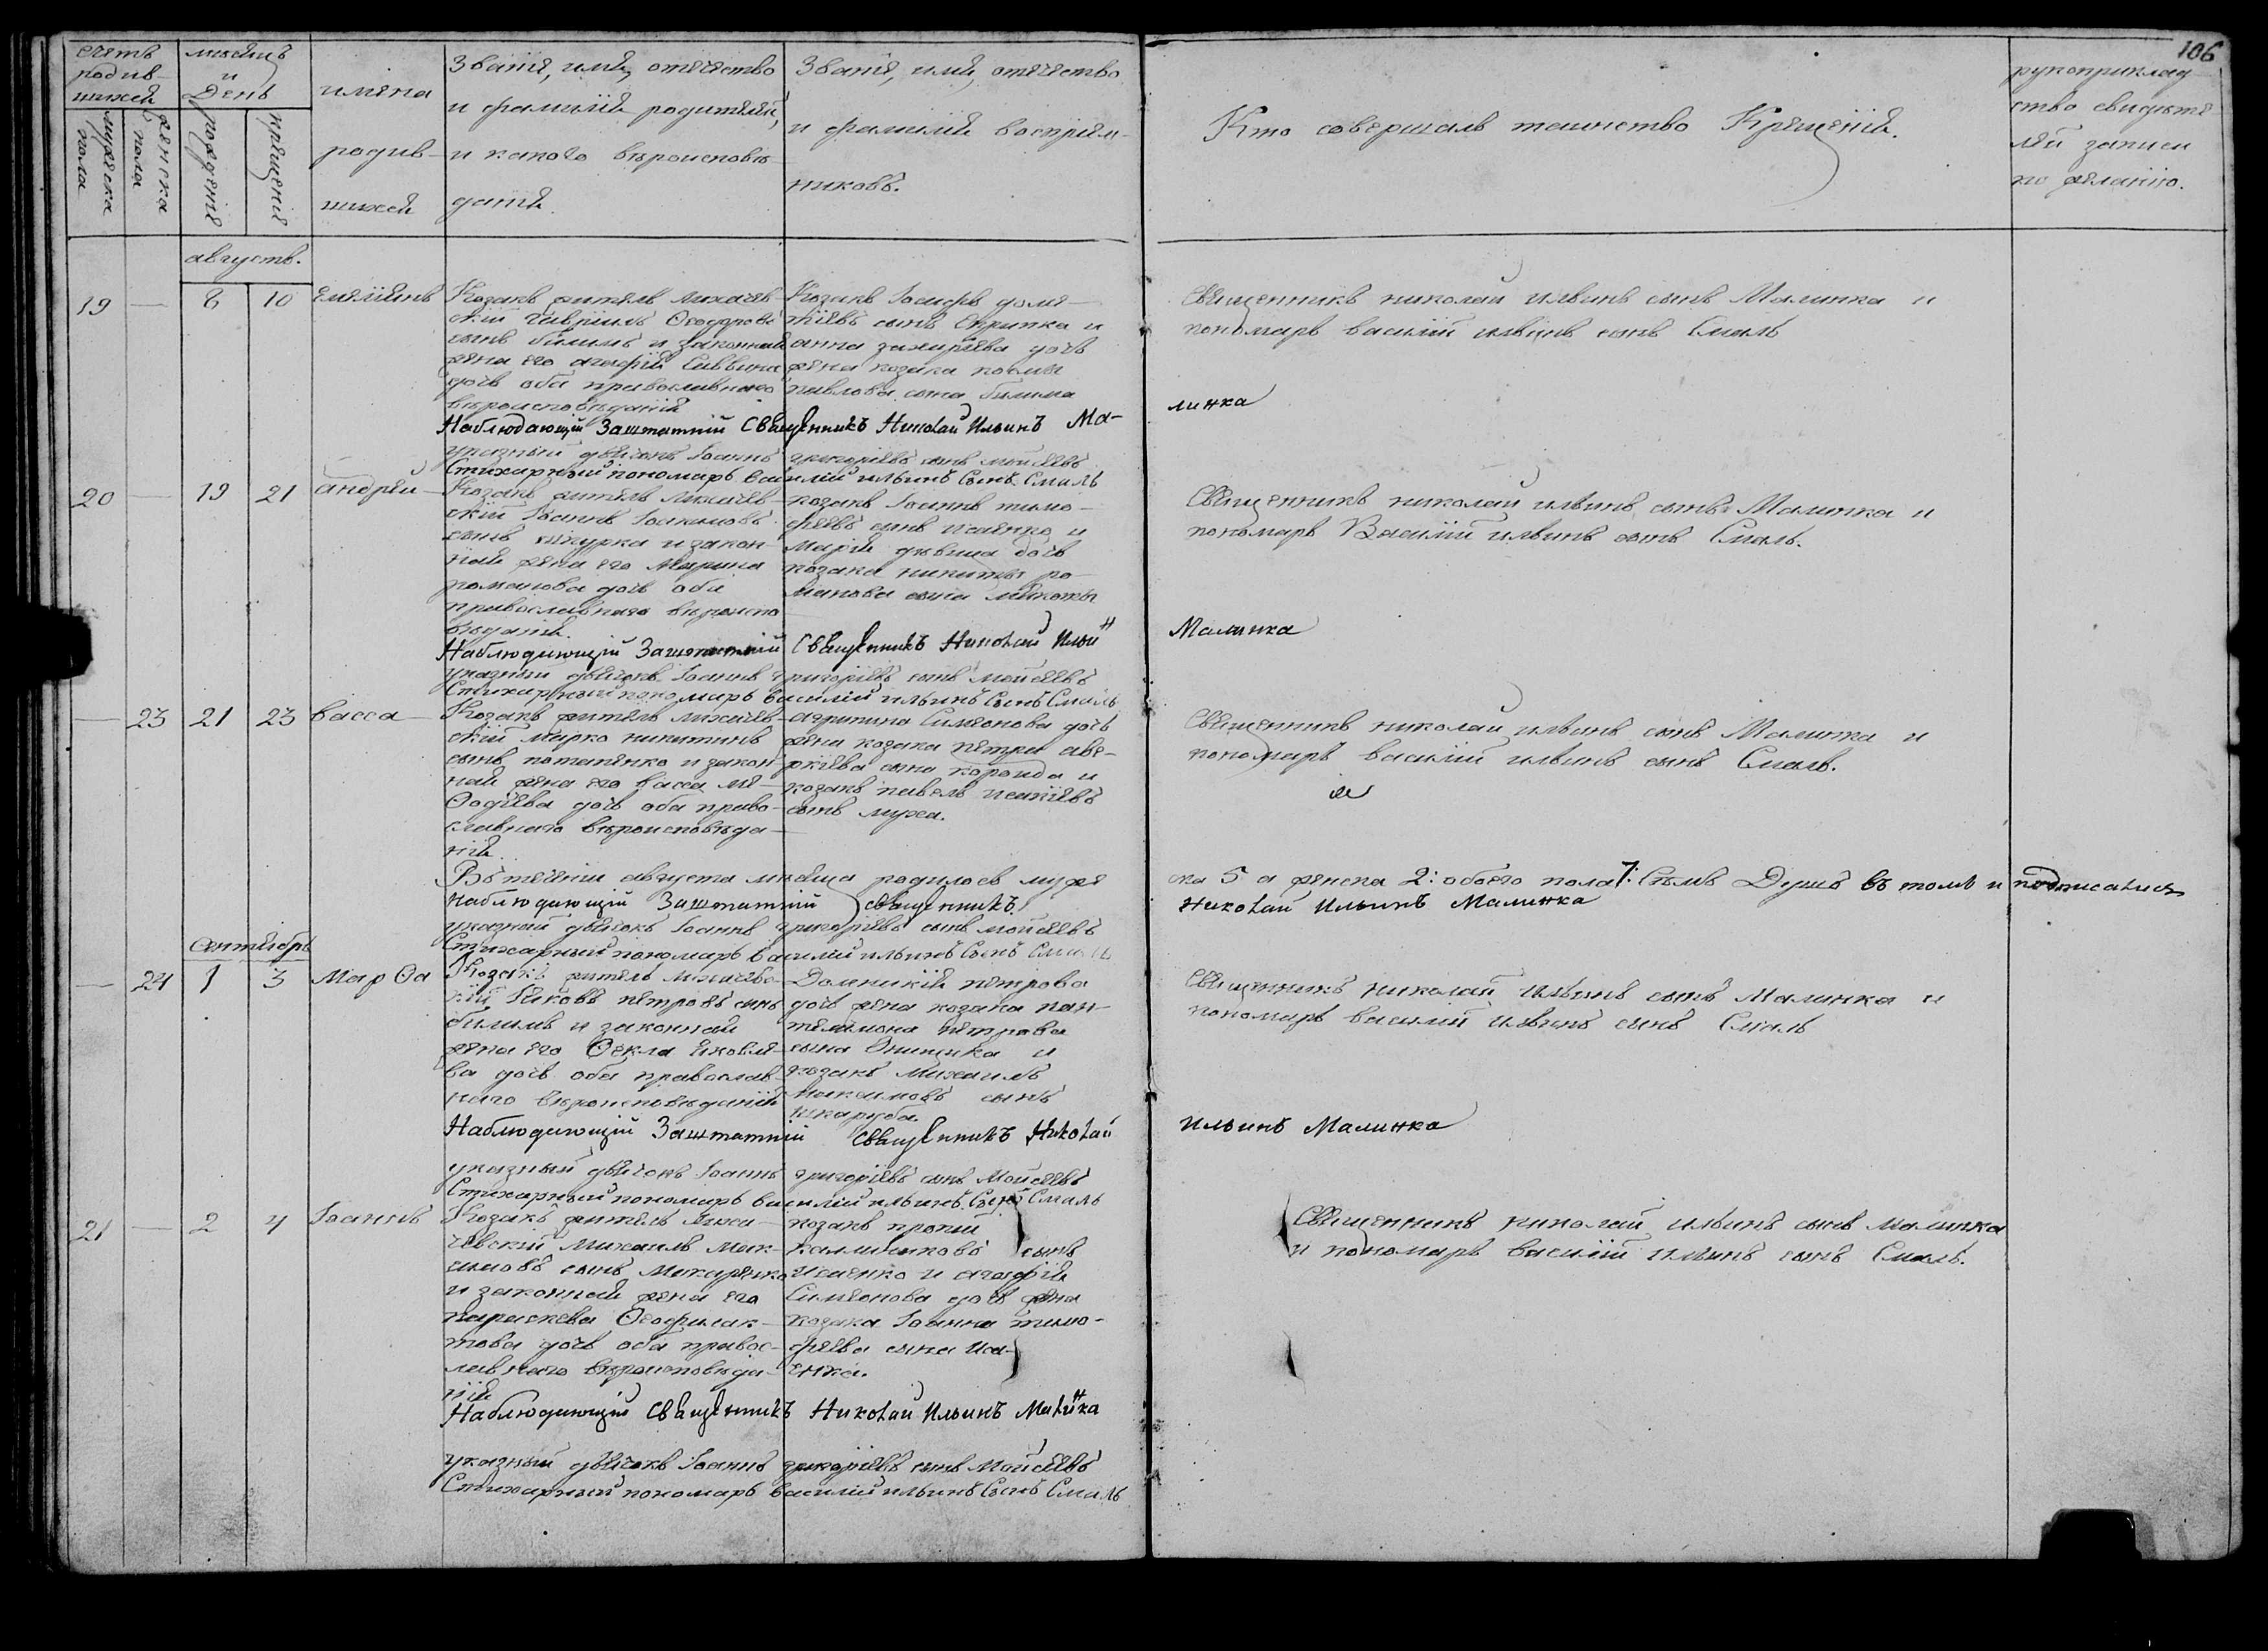 106
счетъ родив- шихся
мужеска пола
женска пола
мѣсяцъ и День
рожденія
крещенія
имена родив- шихся
Званіе, имя, отечество
и фамилія родителей,
и какого вѣроисповѣ
данія.
Званіе, имя, отечество
и фамилія воспріем-
никовъ.
Кто совершалъ таинство Крещенія.
рукоприклад
ство свидѣте
лей записи
по желанію.
августъ.
19 — 8 10 Емеліянъ
Козакъ житель лихачев-
скій Гавріилъ Ѳеодоровъ
сынъ билимъ и законная
жена его агафія Саввина
дочь оба православнаго
вѣроисповѣданія
Козакъ Іосифъ доме-
тіевъ сынъ Скрипка и
анна захаріева дочь
жена козака козмы
павлова сына билима
Священникъ николай ильинъ сынъ Малинка и
пономарь василій ильинъ сынъ Смаль
Наблюдающій Заштатній Священникъ Николай Ильинъ Ма-
линка
указный дьячокъ Іоаннъ григоріевъ сынъ мойсеевъ
Стихарный пономарь василій ильинъ Сынъ Смаль
20 — 19 21 андрей
Козакъ житель лихачев-
скій Іоаннъ Іоакимовъ
сынъ и закон-
ная жена его Марина
романова дочь оба
православнаго вѣроиспо
вѣданія.
козакъ Іоаннъ тимо-
феевъ сынъ исаенко и
Марія дѣвица дочь
козака никиты ро-
манова сына
Священникъ николай ильинъ сынъ Малинка и
пономарь Василій ильинъ сынъ Смаль.
Наблюдающій Заштатній Священникъ Николай Ильин
Малинка
указный дьячокъ Іоаннъ григоріевъ сынъ мойсеевъ
Стихарный пономарь василій ильинъ Сынъ Смаль
— 23 21 23 васса
Козакъ житель лихачев-
скій марко никитинъ
сынъ потапенко и закон-
ная жена его васса ме-
Ѳодіева дочь оба право-
славнаго вѣроисповѣда-
нія.
агрипина Симеонова дочь
жена козака петра аве-
ркіева сына и
козакъ павелъ исакіевъ
сынъ муха.
Священникъ николай ильинъ сынъ Малинка и
пономарь василій ильинъ сынъ Смаль.
Въ теченіи августа мѣсяца родилось муже
ска 5 а женска 2: обоего пола 7: Семь Душъ въ томъ и подписались
Наблюдающій Заштатній священникъ
Николай Ильинъ Малинка
указный дьячокъ Іоаннъ григоріевъ сынъ мойсеевъ
Стихарный пономарь василій ильинъ Сынъ Смаль
сентябрь
— 24 1 3 МарѲа
Козакъ житель лихачевс-
кій Іяковъ петровъ сынъ
билимъ и законная
жена его Ѳекла Яковле-
ва дочь оба православ-
наго вѣроисповѣданія
Домникія петрова
дочь жена козака пан-
телимона петрова
сына Онищика и
козакъ михаилъ
максимовъ сынъ
шкаруба
Священникъ николай ильинъ сынъ Малинка и
пономарь василій ильинъ сынъ Смаль
Наблюдающій Заштатній Священникъ Николай
ильинъ Малинка
указный дьячокъ Іоаннъ григоріевъ сынъ Мойсеевъ
Стихарный пономарь василій ильинъ Сынъ Смаль
21 — 2 4 Іоаннъ
Козакъ житель лиха-
чевскій Михаилъ мак-
симовъ сынъ макаренко
и законная жена его
параскева Ѳеофилак-
това дочь оба правос-
лавнаго вѣроисповѣда-
нія
козакъ
каллиниковъ сынъ
исаенко и агафія
Симеонова дочь жена
козака Іоанна тимо-
феева сына иса-
енка.
Священникъ николай ильинъ сынъ малинка
и пономарь василій ильинъ сынъ Смаль.
Наблюдающій Священникъ Николай Ильинъ Малинка
указный дьячокъ Іоаннъ григоріевъ сынъ Мойсеевъ
Стихарный пономарь василій ильинъ Сынъ Смаль